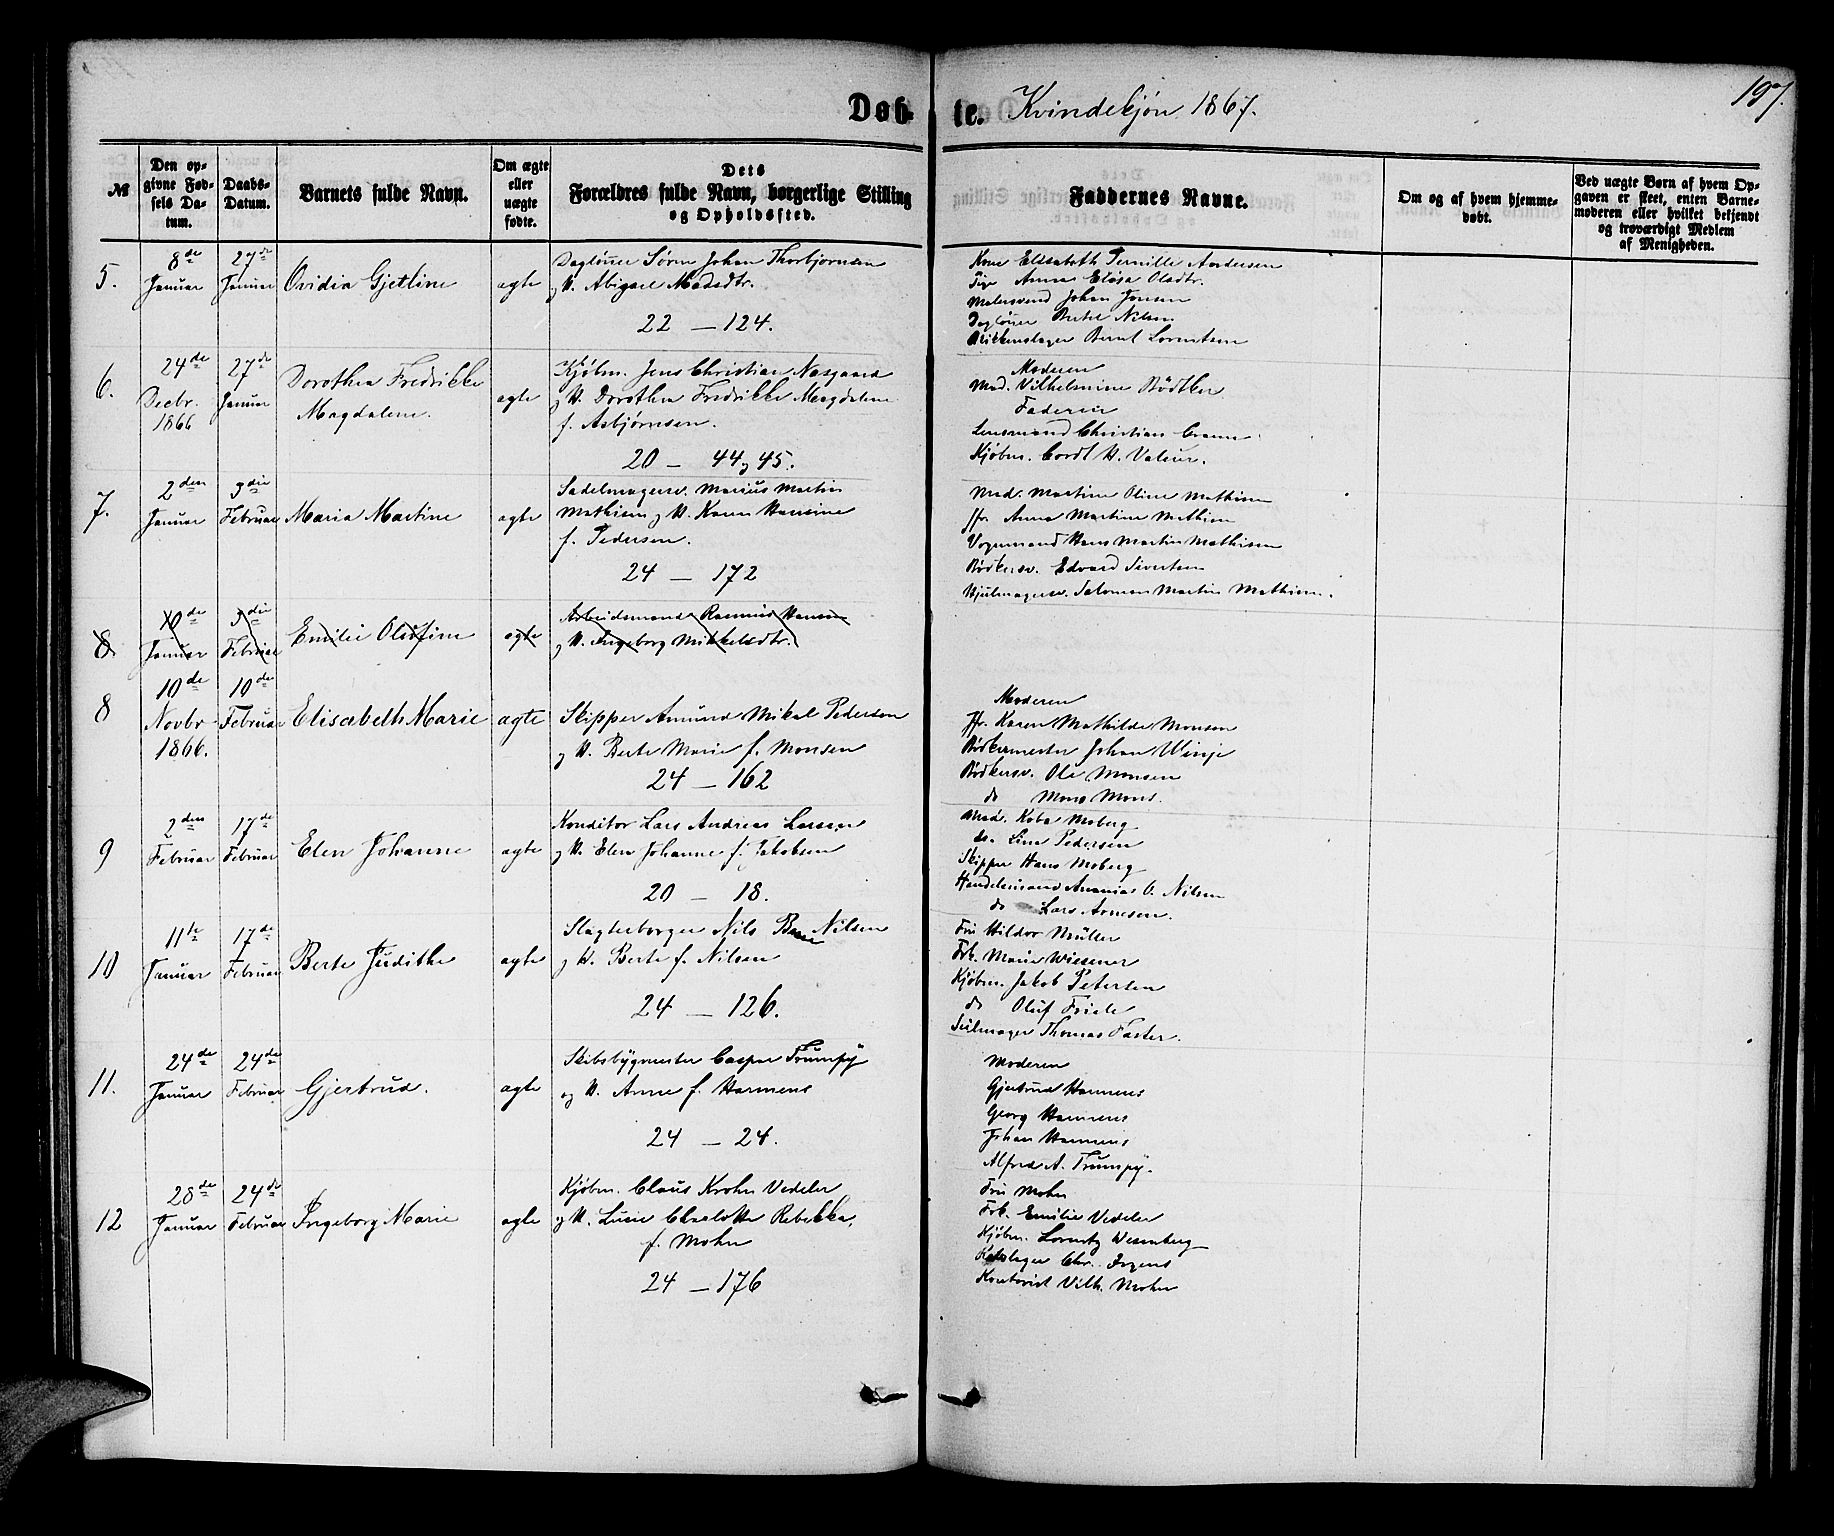 197.
Døbte. Kvindekjøn 1867.
№
Den opgivne Fødsels Datum.
Daabs-Datum.
Barnets fulde Navn.
Om ægte eller uægte fødte.
Dets Forældres fulde Navn, borgerlige Stilling og Opholdssted.
Faddernes Navne.
Om og af hvem hjemmedøbt.
Ved uægte Børn af hvem Opgaven er skeet, enten Barnemoderen eller hvilket bekjendt og troværdigt Medlem af Menigheden.
5. 8de Januar 27de Januar Ovidia Gjetline ægte
Dagløner Søren Johan Thorbjørnsen
og H. Abigael Madsdtr.
22 — 124.
Kone Elisabeth Pernille Andersen
Pige Anna Elisa Olsdtr.
Malersvend Johan Jonsen
Dagløner Bertel Nilsen
Blikkenslager Bernt Lorentsen
6. 24de Decbr. 1866 27de Januar Dorothea Fredrikke Magdalene. ægte
Kjøbm. Jens Christian Naagaard
og H. Dorothea Fredrikke Magdalene
f. Asbjørnsen.
20 — 44 og 45.
Moderen
Mad. Vilhelmine Bødtker
Faderen
Lensmand Christian
Kjøbm. Cordt H. Valeur.
7. 2den Januar 3die Februar Maria Martine ægte
Sadelmagersv. Marius Martin
Mathisen og H. Karen Hansine
f. Pedersen.
24 — 172
Mad. Martine Oline Mathisen
Jfr. Anna Martine Mathisen
Vognmand Hans Martin Mathisen
Bødkersv. Edvard Sivertsen
Hjulmagersv. Salomon Martin Mathisen.
8. 10de Januar 3die Februar Emilie Olufine ægte
Arbeidsmand Rasmus Hansen
og H. Ingeborg Mikkelsdtr.
8 10de Novbr 1866. 10de Februar Elisabeth Marie ægte
Skipper Amund Mikal Pederson
og H. Berte Marie f. Monsen
24 — 162
Moderen
Jfr. Karen Mathilde Monsen
Bødkermester Johan Winje
Bødkersv. Ole Monsen
do Mons Mons.
9 2den Februar 17de Februar Elen Johanne ægte
Konditor Lars Andreas Larsen
og H. Elen Johanne f. Jakobsen
20 — 18.
Mad. Moberg
do. Line Pedersen
Skipper Hans Moberg
Handelsmand Ananias O. Nilsen
do Lars Arnesen.
10 11te Januar 17de Februar Berte Judithe ægte
Slagterborger Nils Nilsen
og H. Berte f. Nilsen
24 — 126.
Fru Hildor Müller
Frk. Marie Wiesener
Kjøbm. Jakob Petersen
do Oluf Friele
Seilmager Thomas Faster.
11. 24de Januar 24de Februar Gjertrud. ægte
Skibsbygmester Caspar Trumpÿ
og H. Anne f. Harmens
24 — 24.
Moderen
Gjertrud Harmens
Georg Harmens
Johan Harmens
Alfred A. Trumpÿ.
12 28de Januar 24de Februar Ingeborg Marie ægte
Kjøbm. Claus Krohn Vedeler
og H. Lucie Charlotte Rebekka,
f. Mohn
24 — 176
Fru Mohn
Frk. Emilie Vedeler
Kjøbm. Lorentz Wesenberg
Chr. Irgens
Kontorist Vilh. Mohn